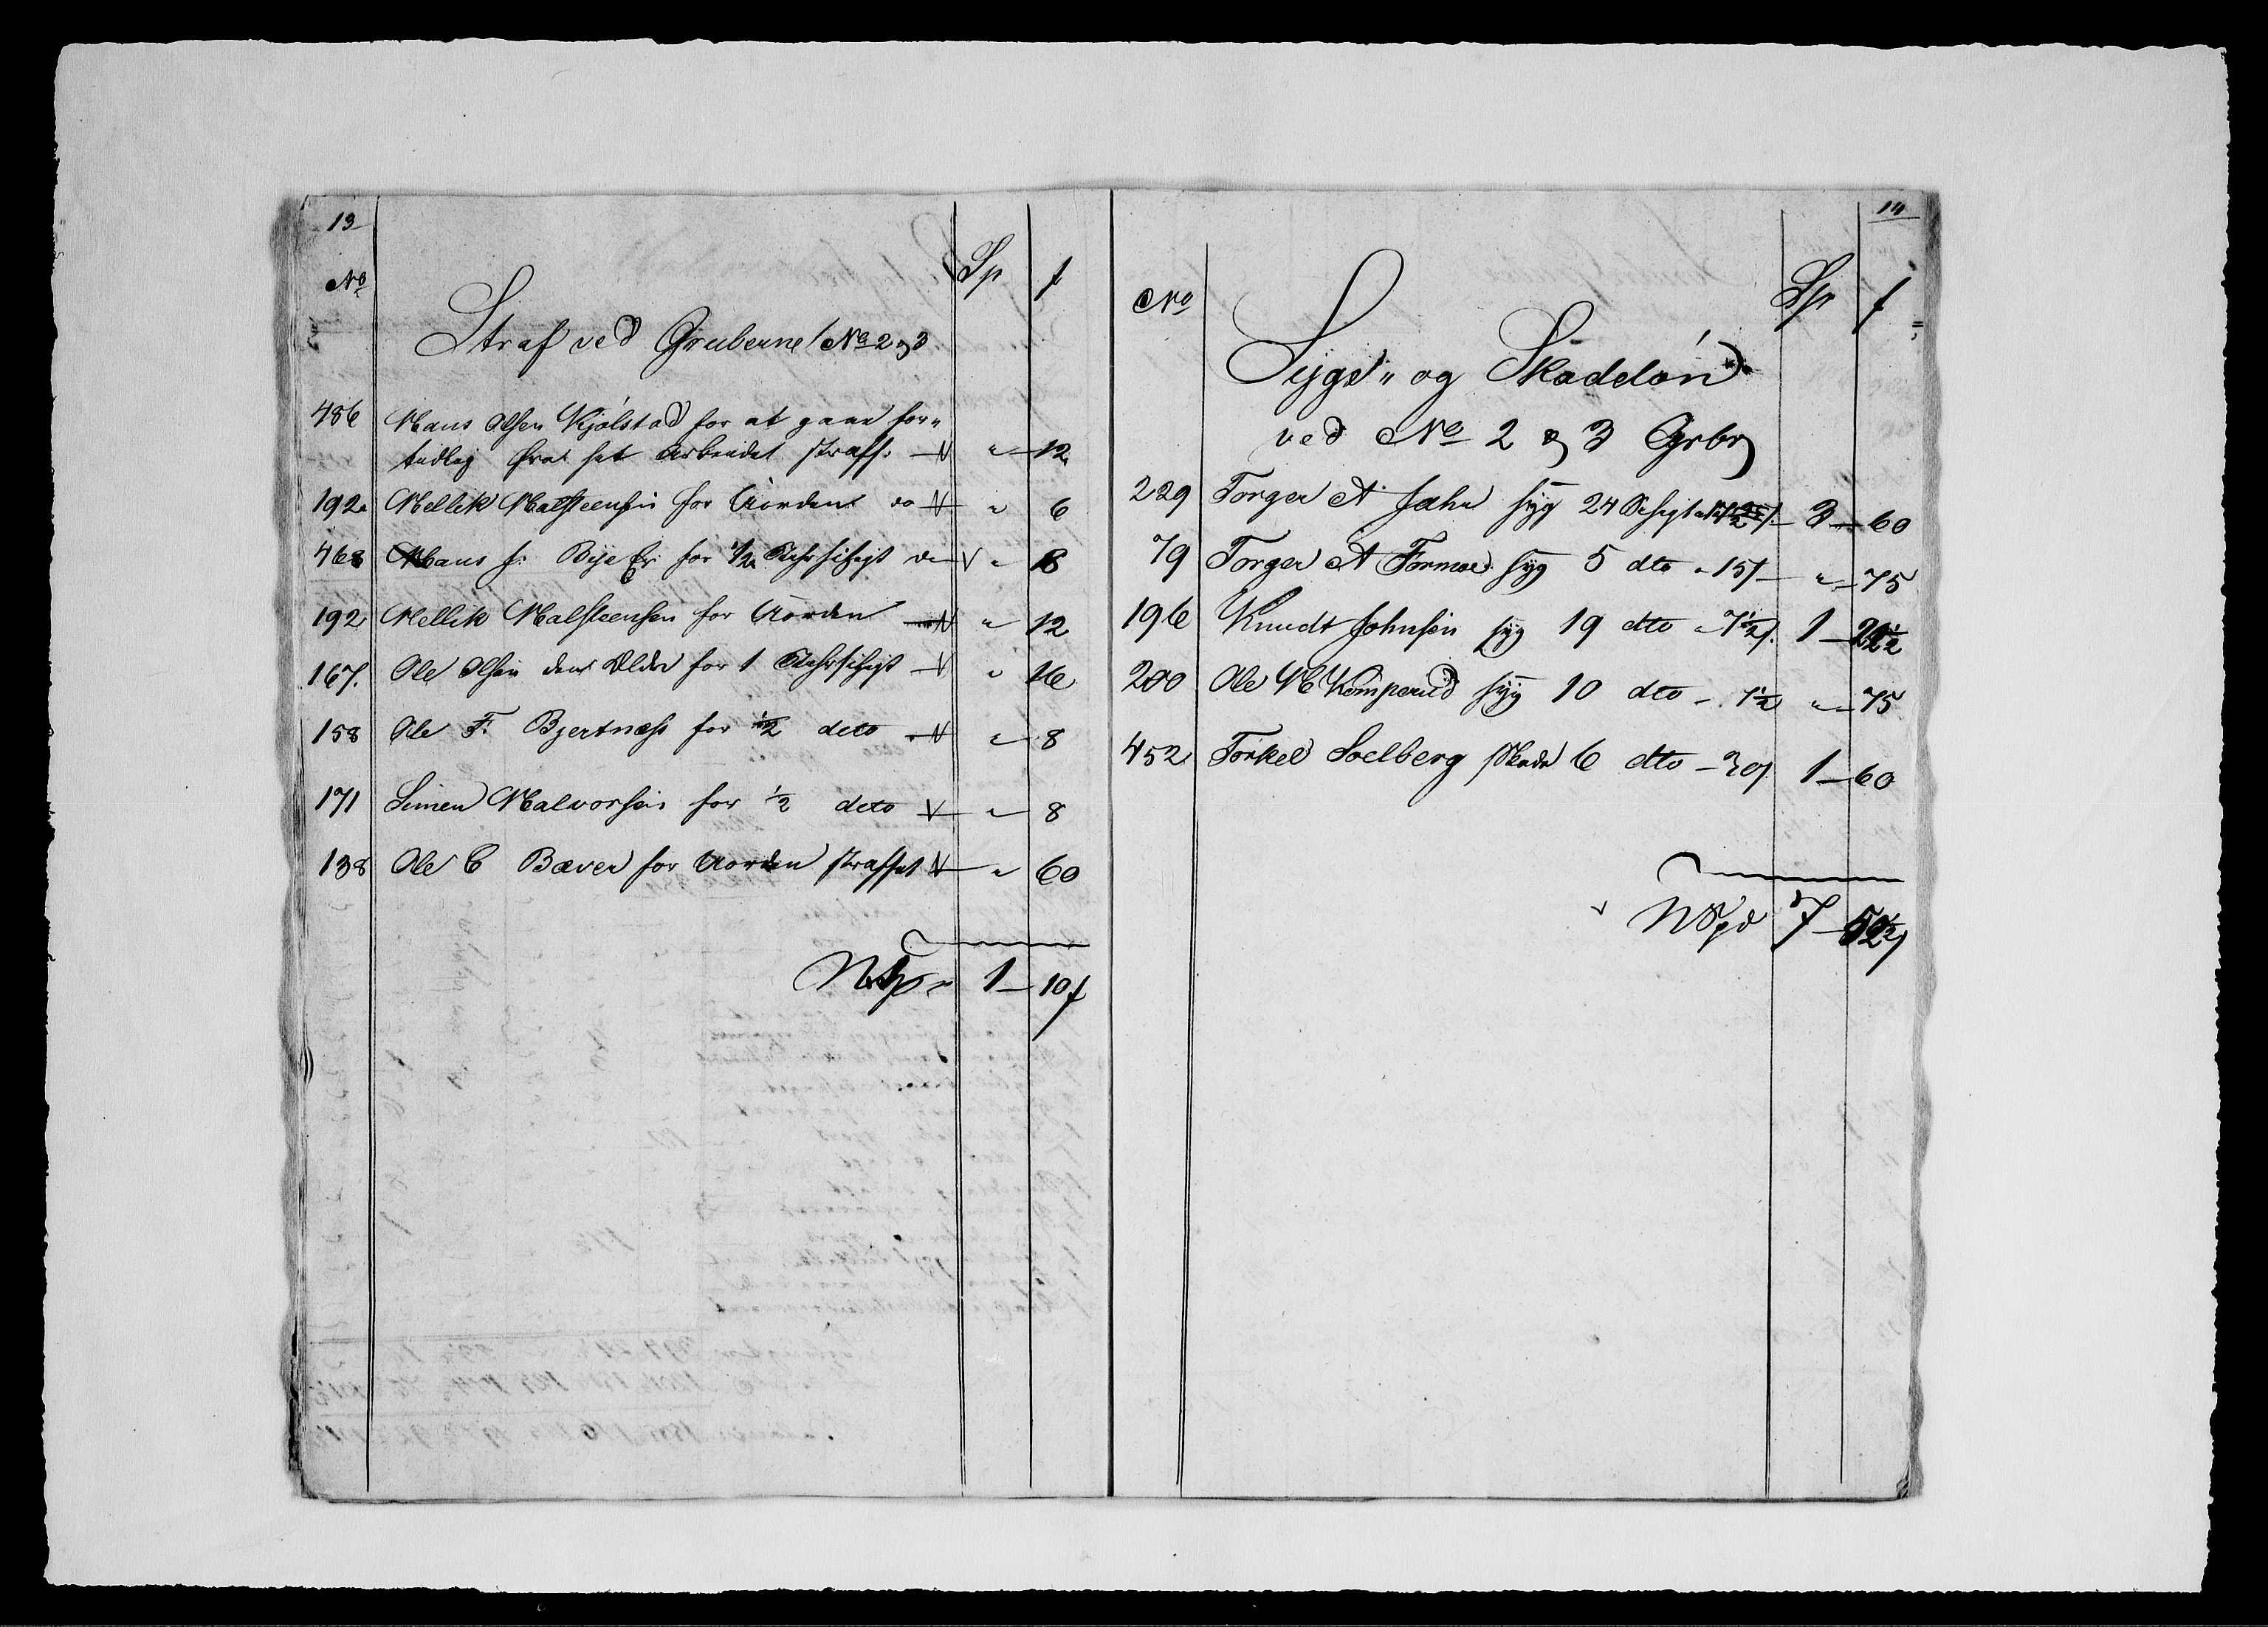 13
No Sp ƒ
Straf ved Gruberne No 2 & 3
486 Hans Olsen Kjølstad for at gaae for„
tidlig fra sit Arbeidet straff: „ 12
192 Mellik Halsteensen for Uorden do „ 6
468 Hans H: Bye Er for 1/2 do „ 8
192 Mellik Halsteensen for Uorden „ 12
167. Ole Olsen den Eldre for 1 „ 16
158 Ole F. Bjertnæss for 1/2 deto „ 8
171 Simen Halvorsen for 1/2 deto „ 8
138 Ole C Bæver for Uorden straffet „ 60
1 — 10ƒ
14
No Sp ƒ
Syge„ og Skadeløn
ved No 2 & 3 Grbr
229 Torger A syg 24 Schigt 3 — 60
79 Torger A Formoe syg 5 dto „ 15ƒ „ 75
196 Knudt Johnsen syg 19 dto „ 7 1/2ƒ. 1 — 22 1/2
200 Ole H Komperud syg 10 dto — 7 1/2 „ 75
452 Torkel Soelberg skade 6 dto — 30ƒ 1 — 60
Spd 7 — 52 1/2ƒ